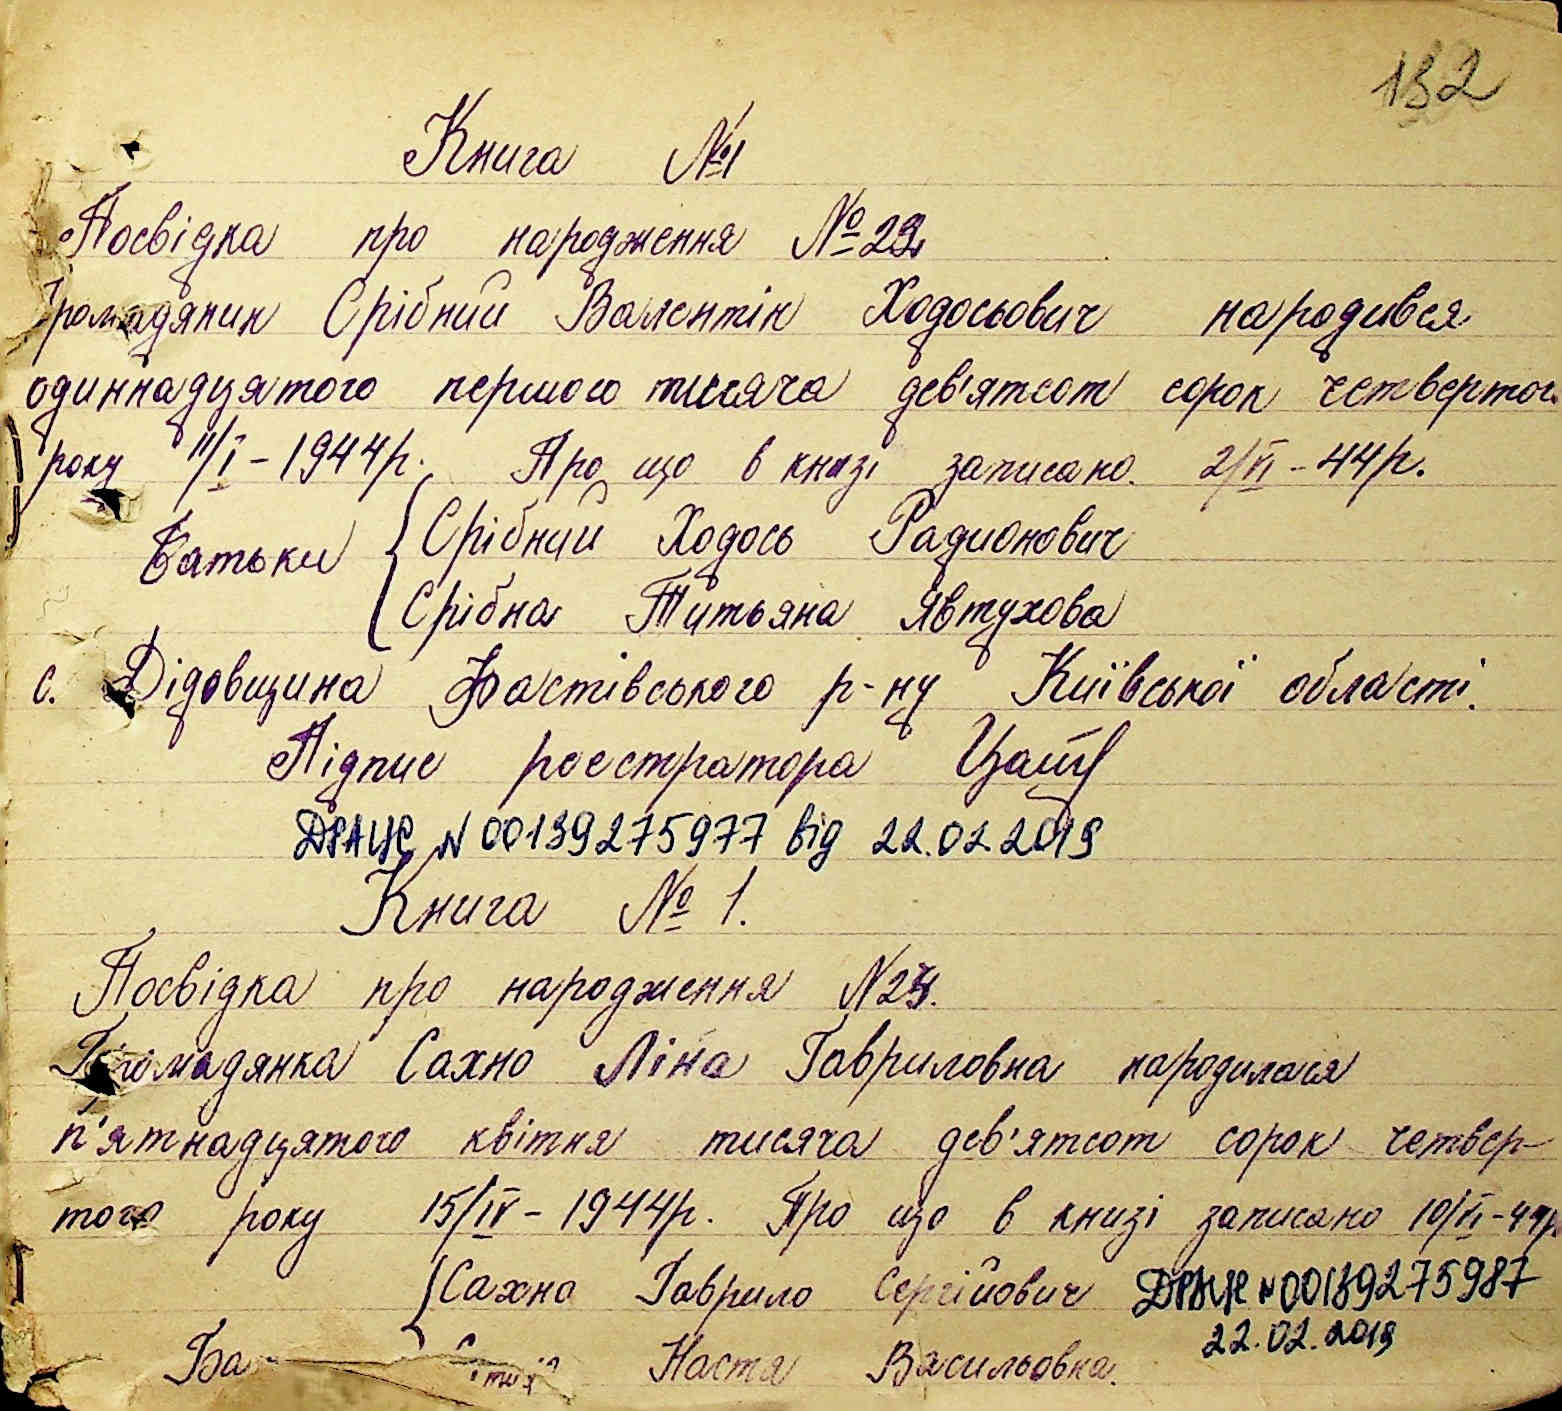 132
Книга №1
Посвідка про народження № 23
Громадянин Срібний Валентін Ходосьович народився
одиннадцятого першого тисяча дев'ятсот сорок четвертог.
року 11/I - 1944р. Про що в книзі записано. 2/VI - 44р.
Батьки { Срібний Ходось Радионович
Срібна Титьяна Явтухова
с. Дідовщина Фастівського р-ну Київської області.
Підпис реєстратора
ДРАЦС N 00139275977 від 22.02.2019
Книга № 1.
Посвідка про народження N 24.
Громадянка Сахно Ліна Гавриловна народилася
п'ятнадцятого квітня тисяча дев'ятсот сорок четвер-
того року 15/IV - 1944р. Про що в книзі записано 10/VI - 44р.
{ Сахно Гаврило Сергійович ДРАЦС N 00139275987
22.02.2019
Ба Настя Васильовна.